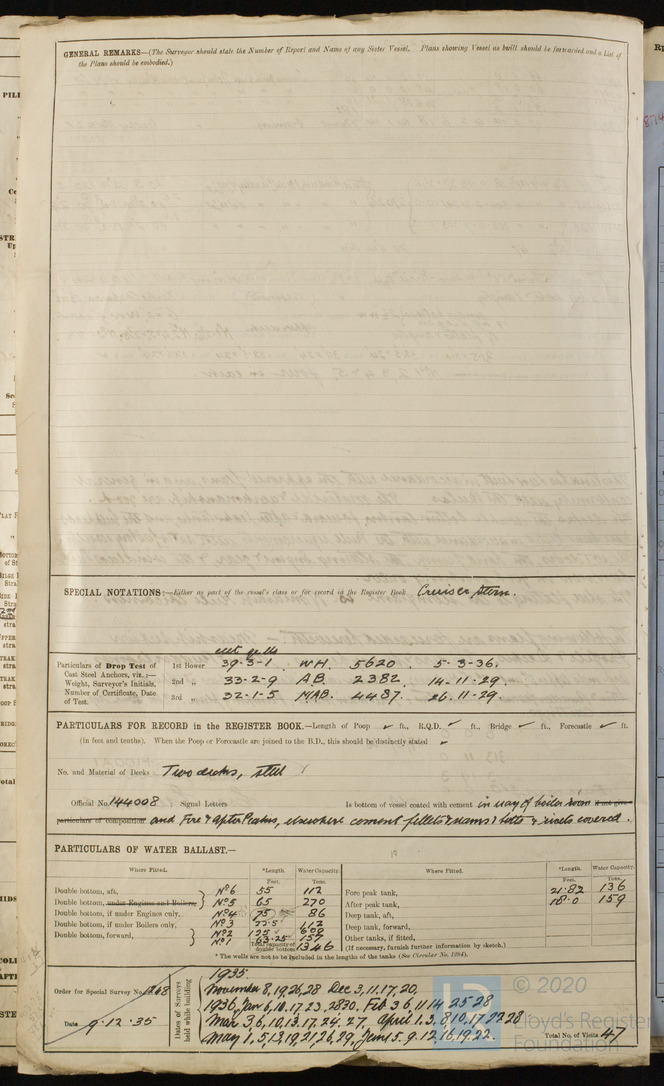 GENERAL REMARKS—(The Surveyor should state the Number of Report and Name of any Sister Vessel. Plans showing Vessel as built should be forwarded and a List of
the Plans should be embodied.)
SPECIAL NOTATIONS:—Either as part of the vessel's class or for record in the Register Book. Cruiser stern.
cwt qr lb
Particulars of Drop Test of 1st Bower 39-3-1 W.H. 5620 5-3-36.
Cast Steel Anchors, viz.:—
Weight, Surveyor's Initials, 2nd „ 33-2-9 A.B. 2382 14-11-29.
Number of Certificate, Date
of Test. 3rd „ 32-1-5 4487. 26-11-29.
PARTICULARS FOR RECORD in the REGISTER BOOK.—Length of Poop ✓ ft., R.Q.D. ✓ ft., Bridge ✓ ft., Forecastle ✓ ft.
(in feet and tenths). When the Poop or Forecastle are joined to the B.D., this should be distinctly stated ✓
No. and Material of Decks Two decks, steel
Official No. 144008 Signal Letters Is bottom of vessel coated with cement in way of boiler room if not give
particulars of composition and Fore & after Peaks, elsewhere cement fillets & seams & butts & rivets covered.
PARTICULARS OF WATER BALLAST.—
Where Fitted. *Length. Water Capacity. Where Fitted. *Length. Water Capacity.
Feet. Tons. Feet. Tons.
Double bottom, aft, Nº 6 55 112 Fore peak tank, 21.82 136
Double bottom, under Engines and Boilers, Nº 5 65 270 After peak tank, 18.0 159
Double bottom, if under Engines only, Nº 4 75 86 Deep tank, aft,
Double bottom, if under Boilers only, Nº 3 112 Deep tank, forward,
Double bottom, forward, Nº 2 Other tanks, if fitted,
Nº 1 63.25 157 (If necessary, furnish further information by sketch.)
Total capacity of double bottom 1346
* The wells are not to be included in the lengths of the tanks (See Circular No. 1284).
Order for Special Survey No. 268
Date 9.12.35
Dates of Surveys held while building
1935.
November 8, 19, 26, 28 Dec 3, 11, 17, 20,
1936, Jan 6, 10, 17, 23, 28 30. Feb 3 6, 11 14 25 28
Mar 3, 6, 10, 13, 17, 24, 27, April 1, 3, 8, 10, 17, 22 28
May 1, 5, 13, 19, 21, 26, 29, June 5. 9. 12, 16, 19, 22.
Total No. of Visits 47
© 2020
Lloyd's Register
Foundation